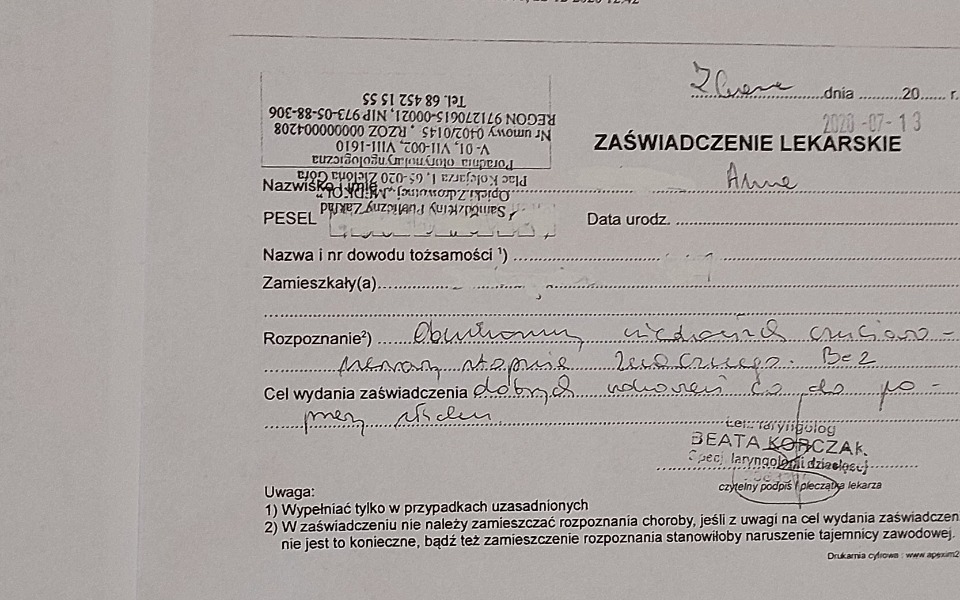 Z. Góra dnia .......... 20...... r.
2020 -07- 1 3
ZAŚWIADCZENIE LEKARSKIE
Samodzielny Publiczny Zakład
Opieki Zdrowotnej „MEDKOL”
Plac Kolejarza 1, 65-020 Zielona Góra
Poradnia otorynolaryngologiczna
V- 01, VII-002, VIII-1610
Nr umowy 0402/0145 , RZOZ 000000004208
REGON 971270615-00021, NIP 973-05-88-306
Tel. 68 452 15 55
Nazwisko i imię Anna
PESEL Data urodz.
Nazwa i nr dowodu tożsamości ¹)
Zamieszkały(a)
Rozpoznanie²) Obustronny niedosłuch czuciowo -
nerwowy stopnia znacznego. Bez
Cel wydania zaświadczenia dobrych rokowań co do po -
prawy słuchu
Lek. laryngolog
BEATA KORCZAK
Specj. laryngologii dziecięcej
czytelny podpis i pieczątka lekarza
Uwaga:
1) Wypełniać tylko w przypadkach uzasadnionych
2) W zaświadczeniu nie należy zamieszczać rozpoznania choroby, jeśli z uwagi na cel wydania zaświadczen
nie jest to konieczne, bądź też zamieszczenie rozpoznania stanowiłoby naruszenie tajemnicy zawodowej.
Drukarnia cyfrowa : www.apexim2